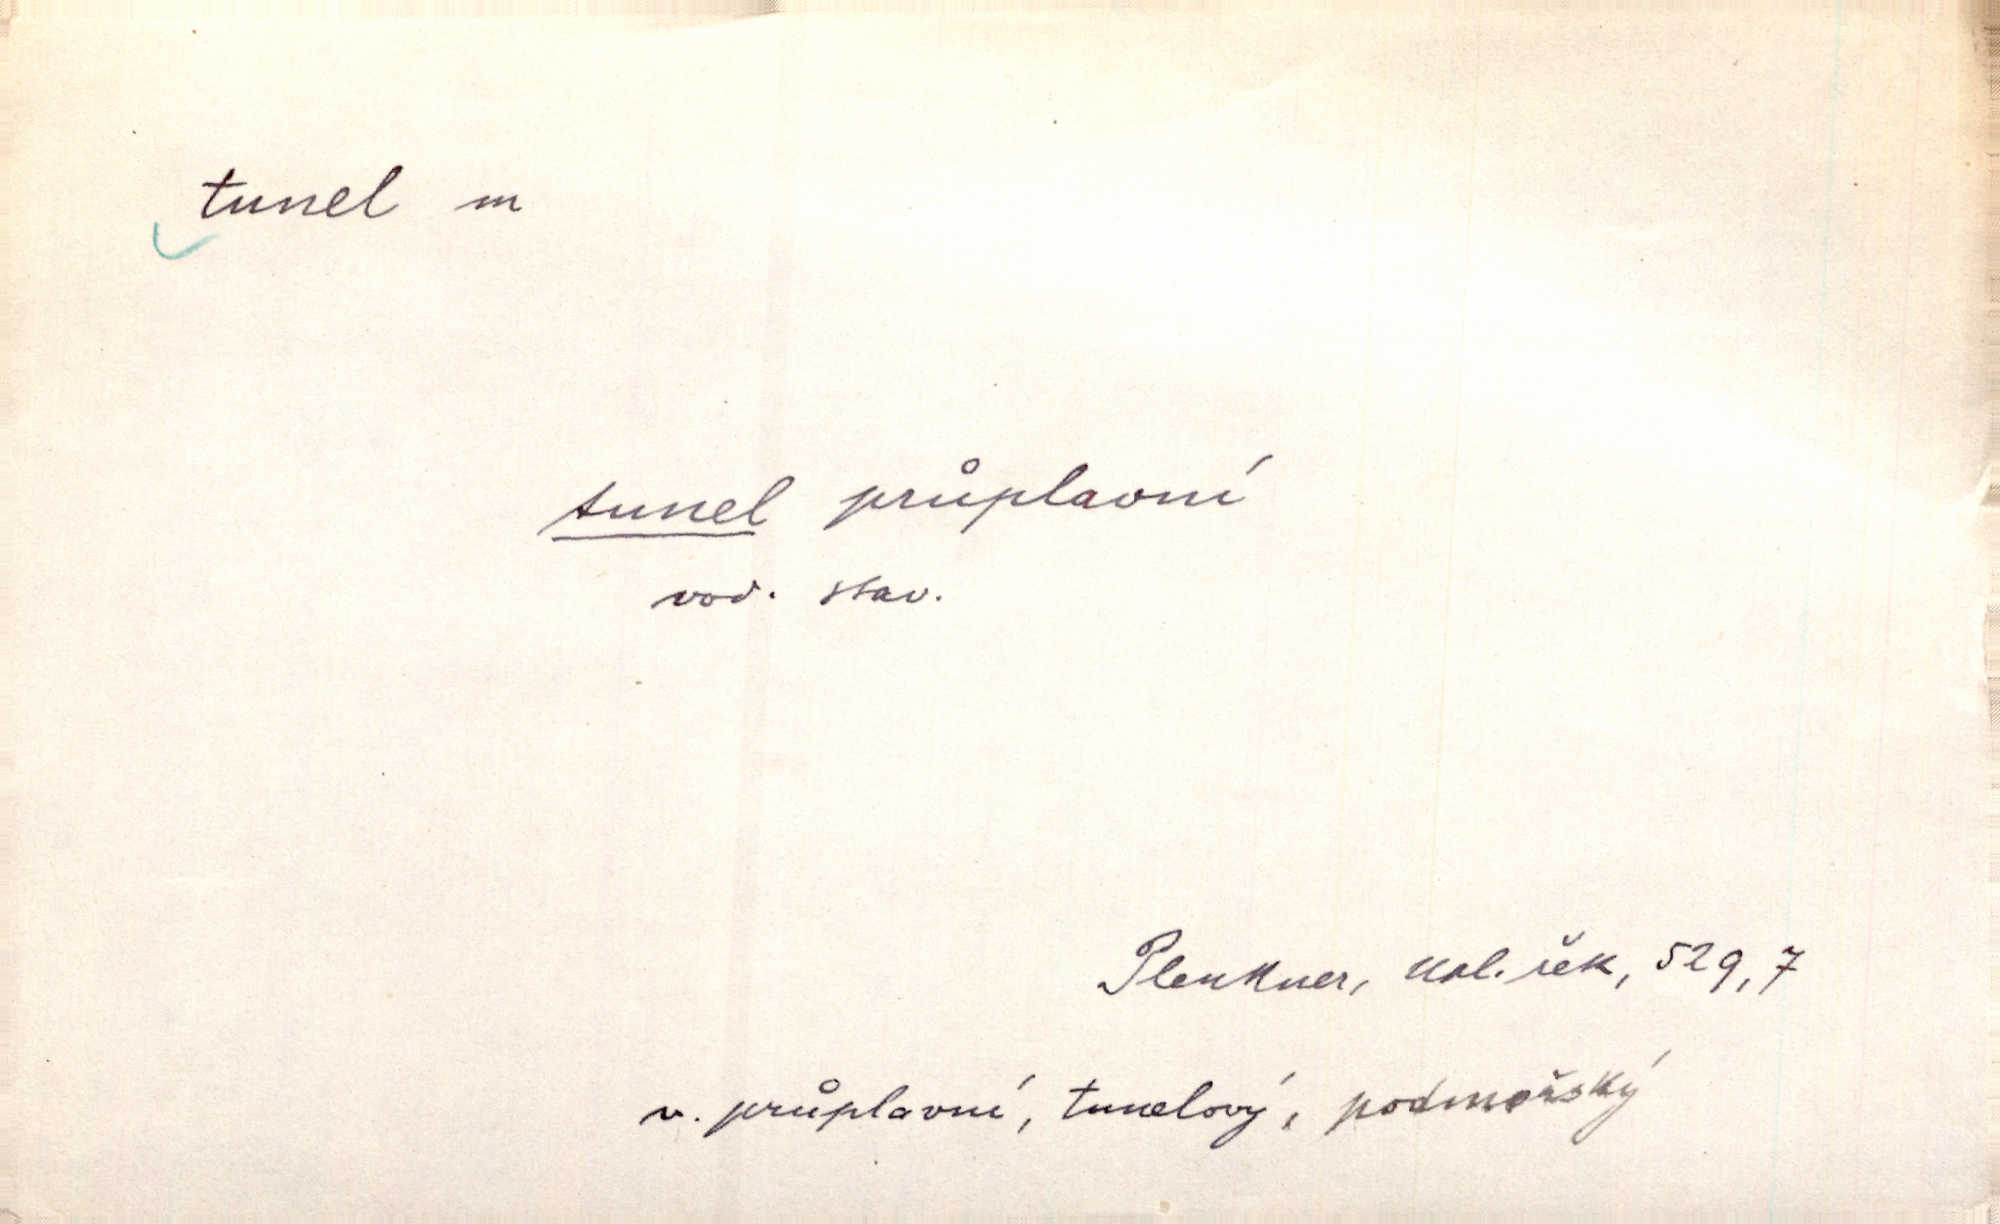 tunel m
tunel průplavní
vod. stav.
Plenkner, Kol. řek, 529,7
v. průplavní, tunelový, podmořský